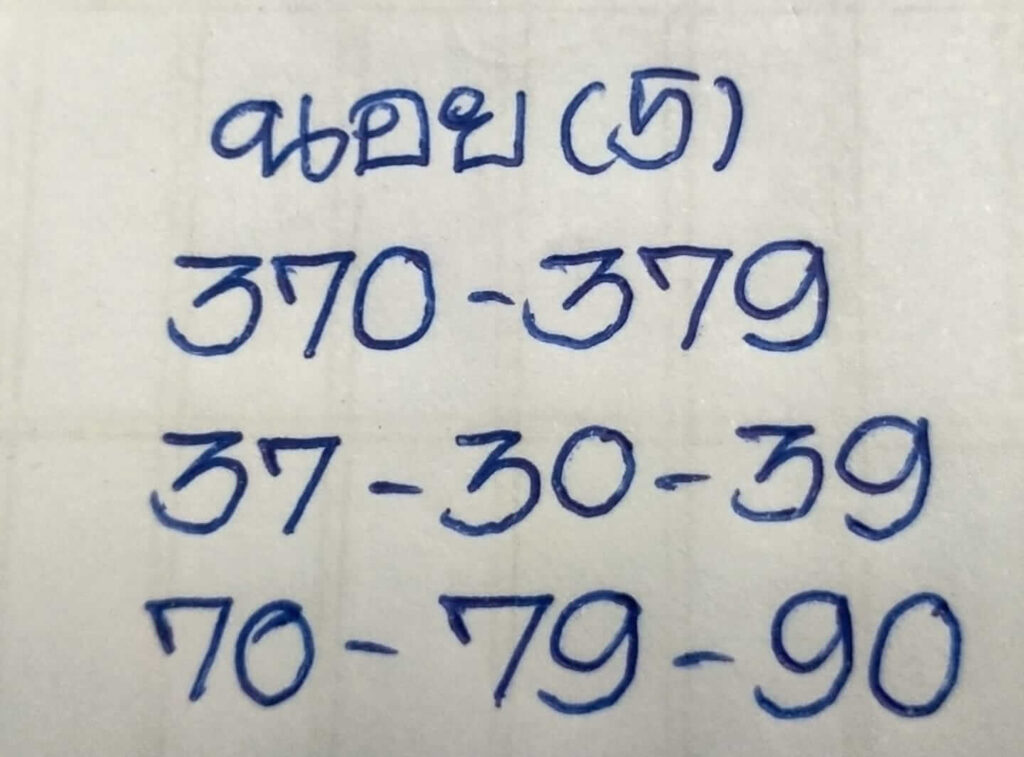 ฉอย (5)
370-379
37-30-39
70-79-90